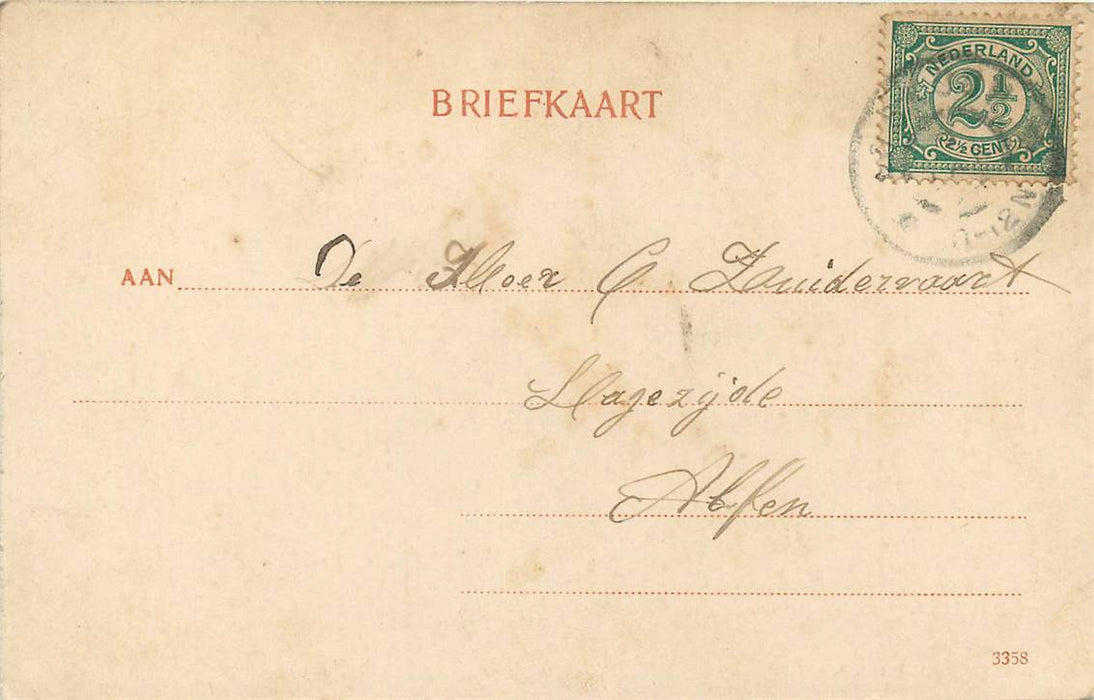 BRIEFKAART
NEDERLAND
2½
2½ CENT
11-12 N
AAN De Heer C Zuidervaart
Hagezijde
Alfen
3358